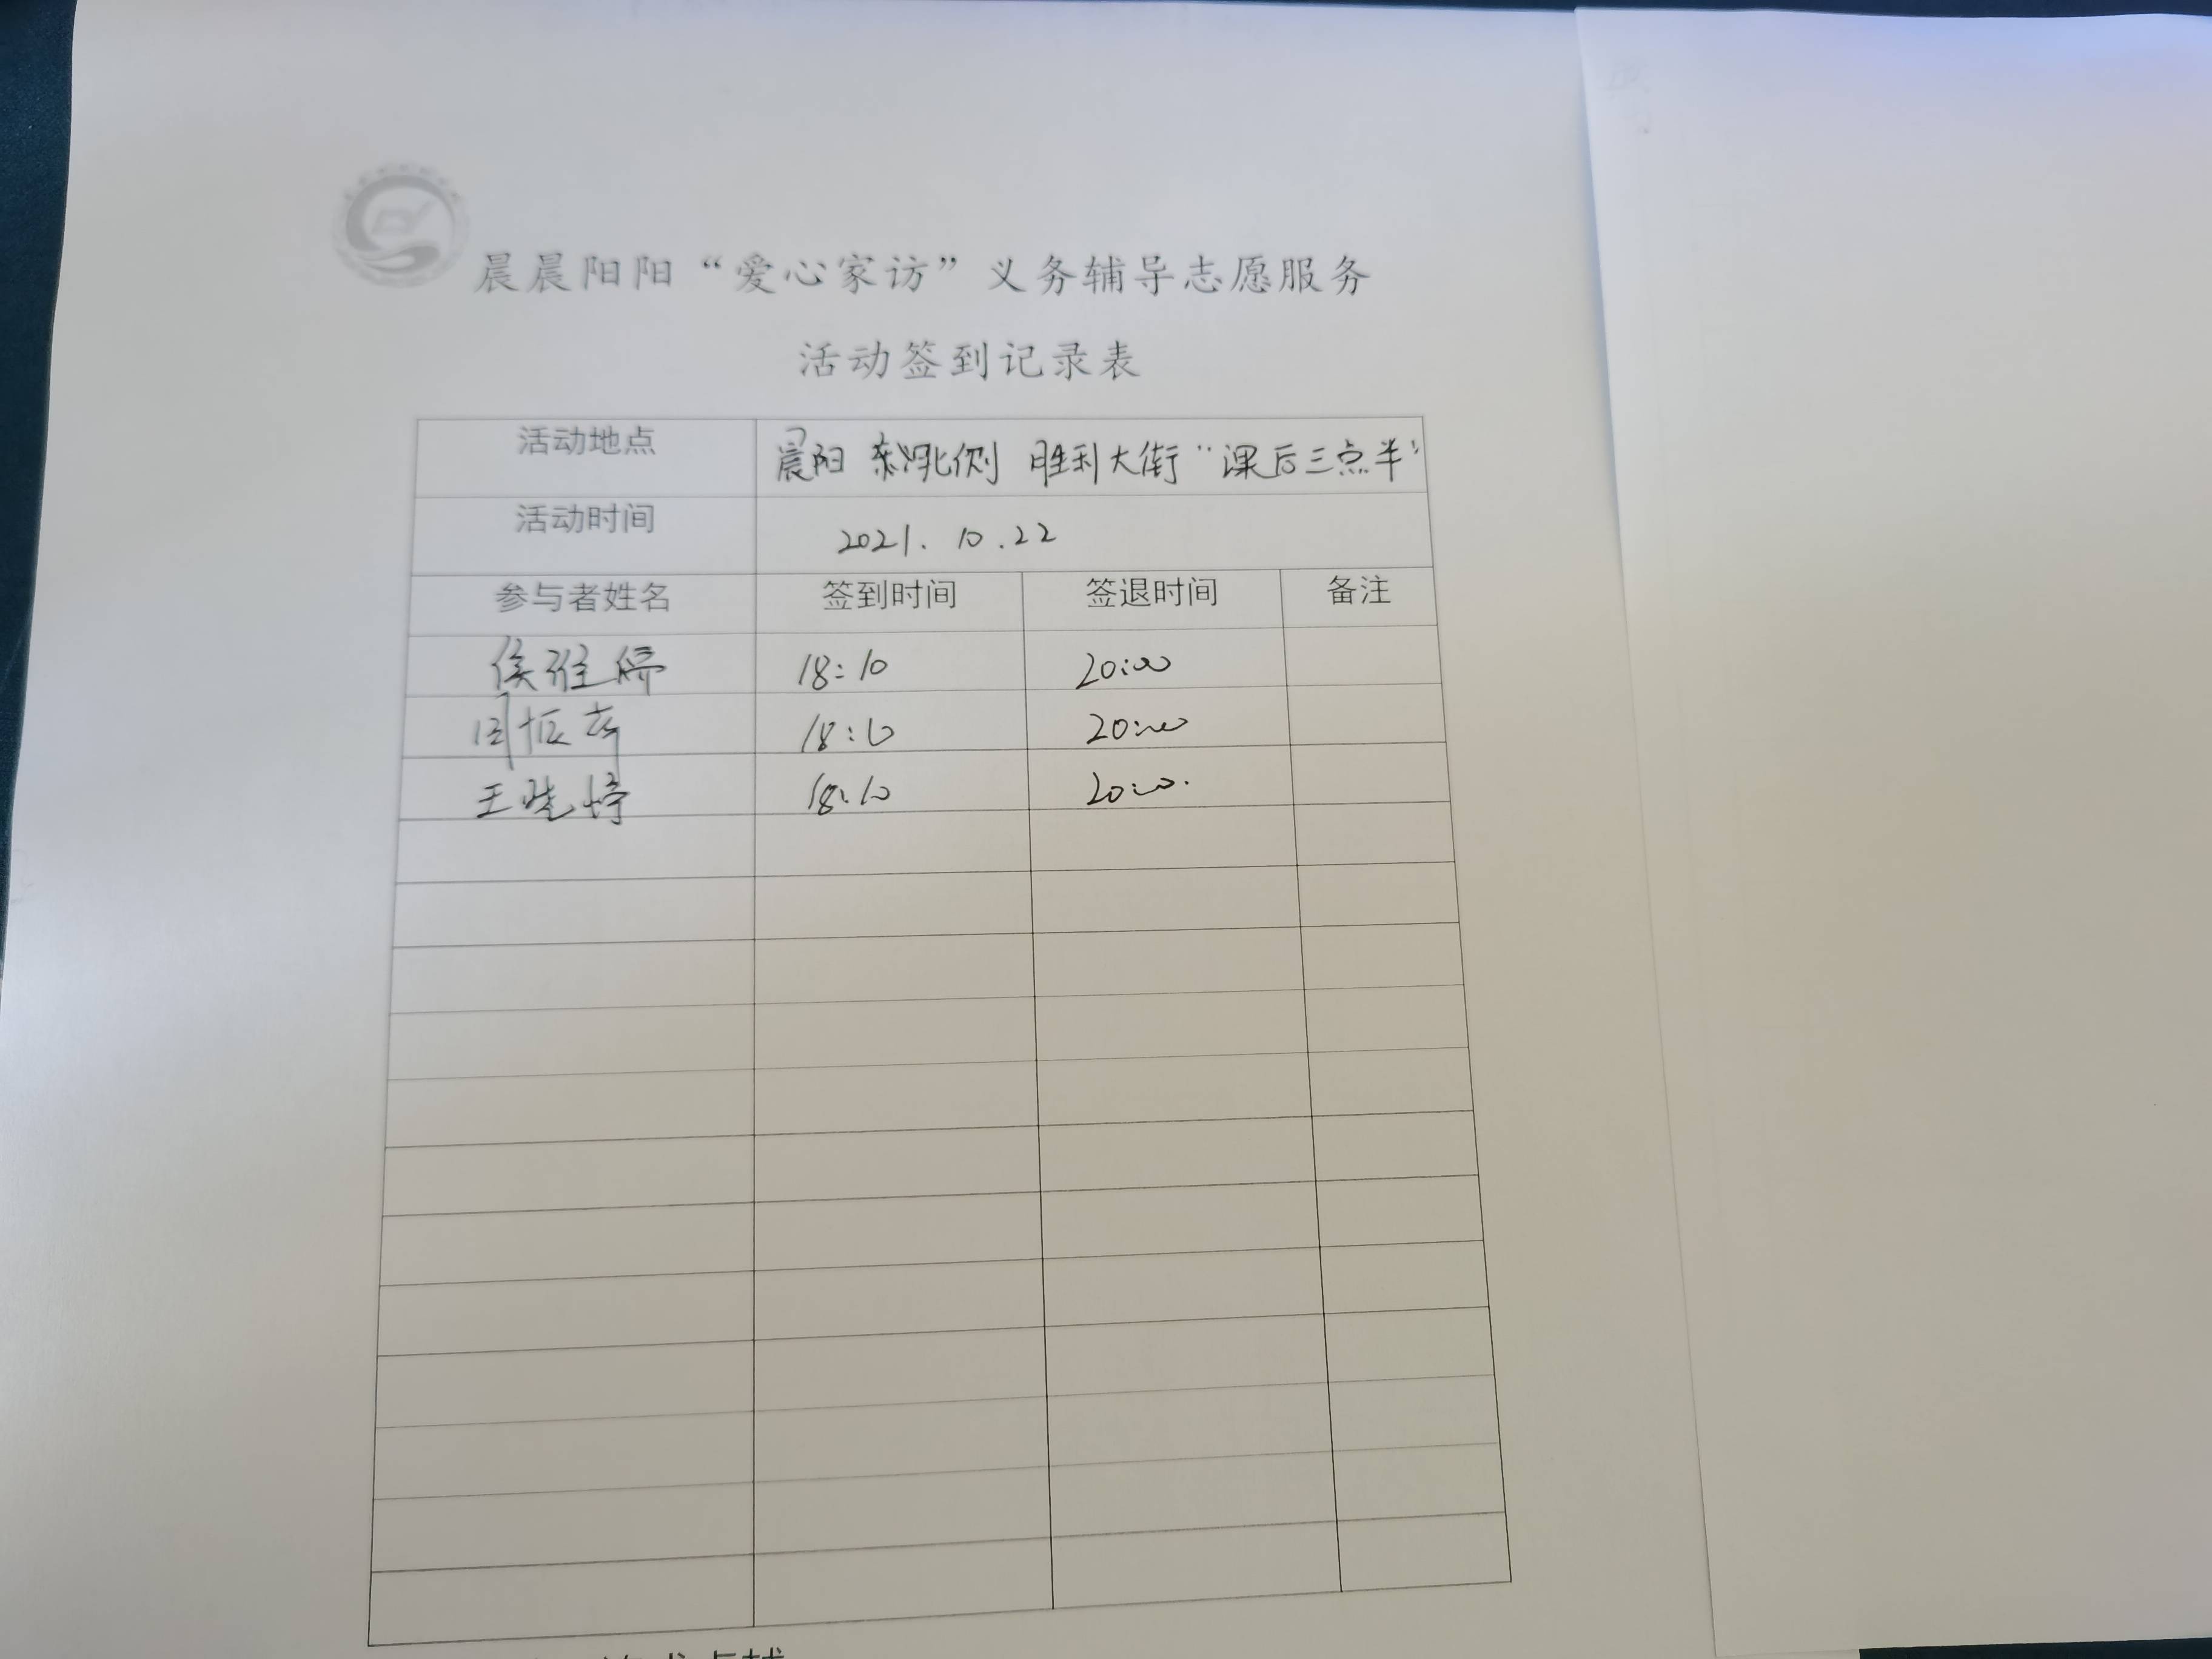 晨晨阳阳“爱心家访”义务辅导志愿服务
活动签到记录表
活动地点 晨阳 北侧 胜利大街“课后三点半”
活动时间 2021.10.22
参与者姓名 签到时间 签退时间 备注
侯雅娇 18:10 20:00
周 18:10 20:00
王晓婷 18:10 20:00.